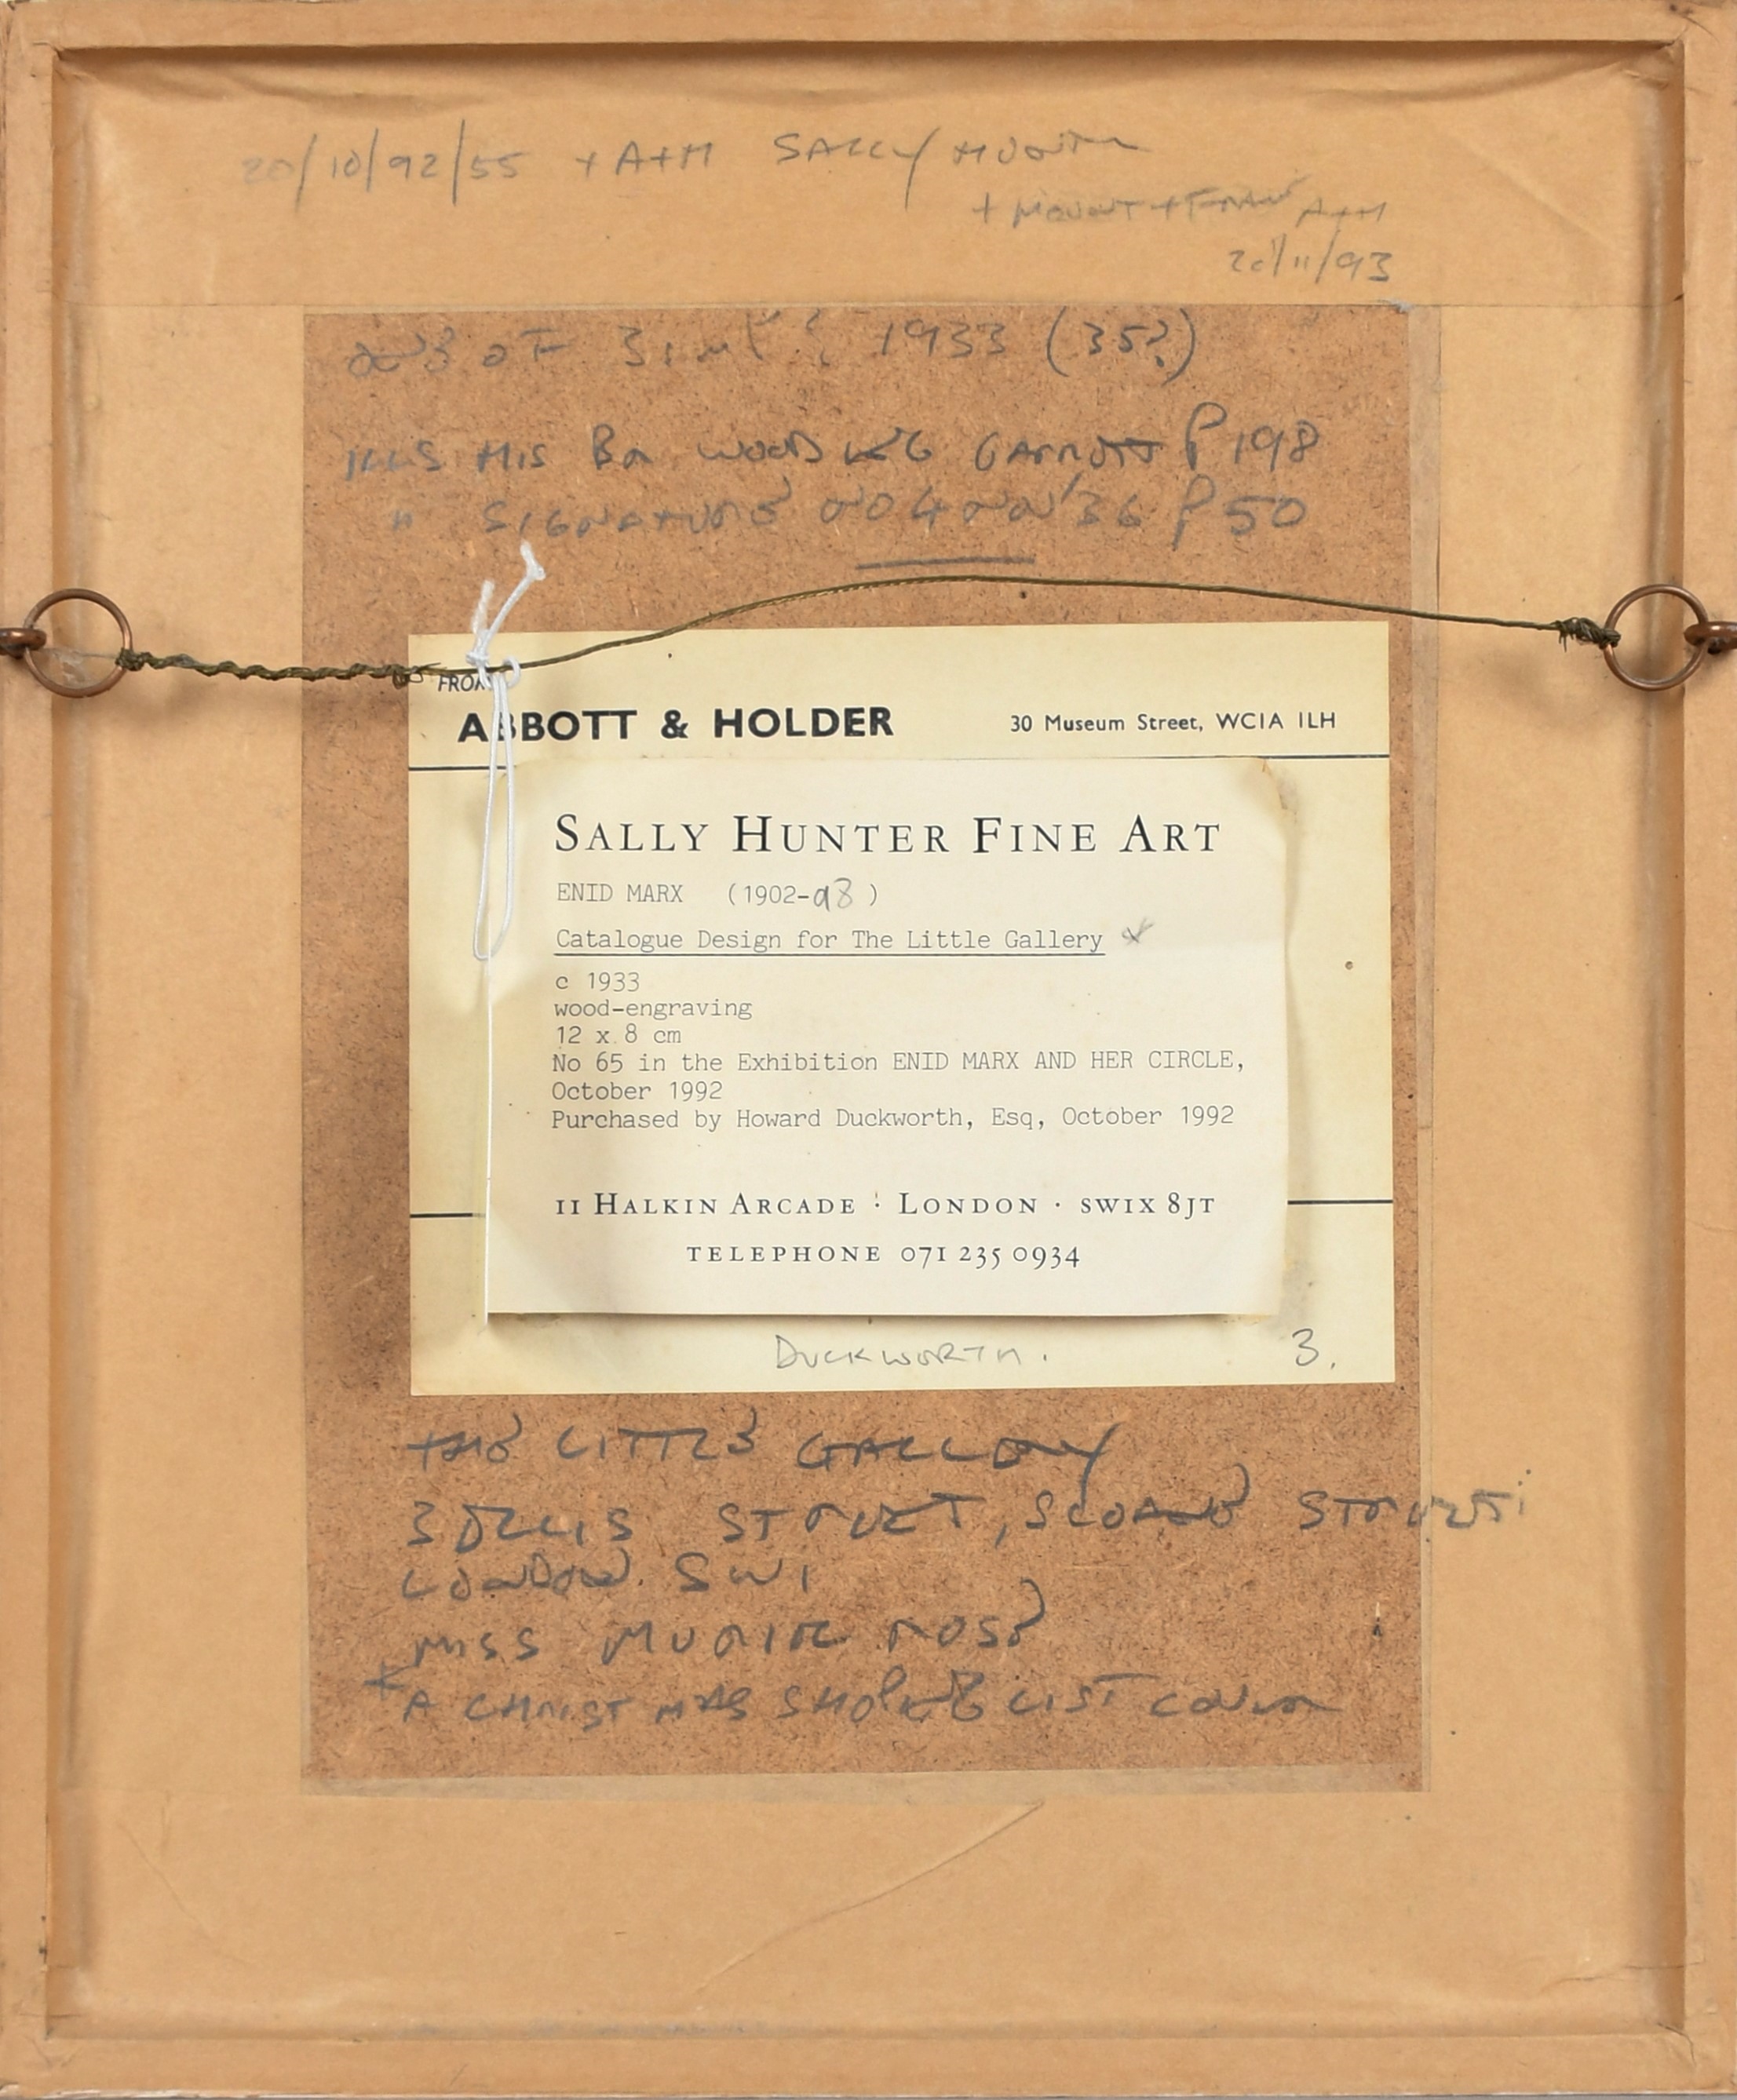 20/10/92/55 + A+M SALLY HUNTER
+ MOUNT + FRAME A+H
20/11/93
OF 1933 (35?)
ILLUS HIS BR WOOD ENG GARRETT P 198
" SIGNATURE NO 4 NOV '36 P 50
FROM
ABBOTT & HOLDER 30 Museum Street, WC1A 1LH
SALLY HUNTER FINE ART
ENID MARX (1902-98)
Catalogue Design for The Little Gallery
c 1933
wood-engraving
12 x 8 cm
No 65 in the Exhibition ENID MARX AND HER CIRCLE,
October 1992
Purchased by Howard Duckworth, Esq, October 1992
11 HALKIN ARCADE · LONDON · SW1X 8JT
TELEPHONE 071 235 0934
DUCKWORTH. 3.
THE LITTLE GALLERY
3 ELLIS STREET, SLOANE STREET
LONDON. SW1
MISS MURIEL ROSE
* A CHRISTMAS SHOPKG LIST COVER